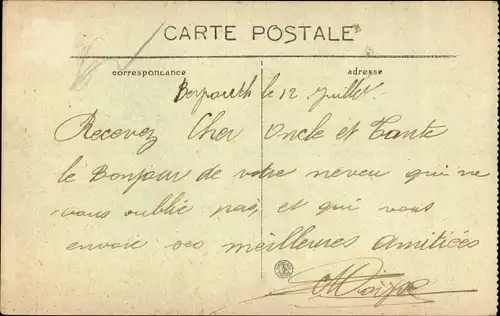 CARTE POSTALE
correspondance
adresse
le 12 Juillet
Recevez Cher Oncle et Tante
le Bonjour de votre neveu qui ne
vous oublie pas, et qui vous
envoie ses meilleures amitiées